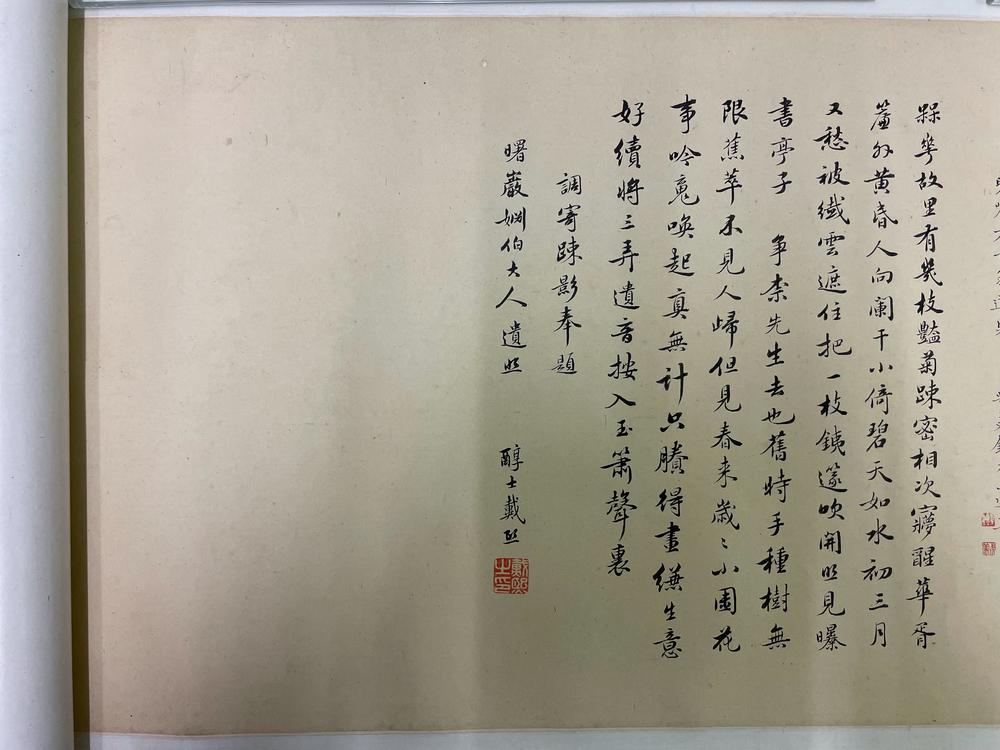 槑華故里有幾枝豔菊踈密相次寱醒華胥
簾外黃昏人向闌干小倚碧天如水初三月
又愁被纖雲遮住把一枝銕篴吹開照見曝
書亭子 爭柰先生去也舊時手種樹無
限蕉萃不見人歸但見春来歲〻小園花
事吟䰟喚起真無計只賸得畫縑生意
好續將三弄遺音按入玉簫聲裏
調寄踈影奉題
曙巖姻伯大人遺照
醇士戴熙
戴熙之印